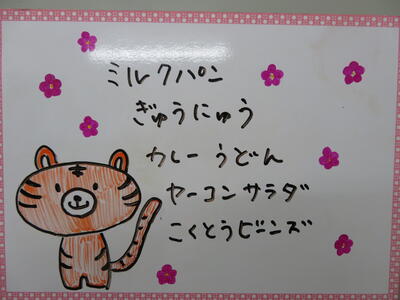 ミルクパン
ぎゅうにゅう
カレーうどん
ヤーコンサラダ
こくとうビーンズ